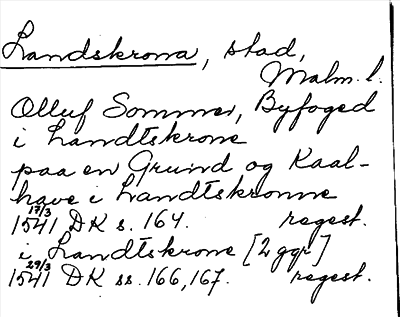 Landskrona, stad,
Malm. l.
Olluf Sommer, Byfoged
i Landtskrone
paa en Grund og Kaal-
have i Landtskronne
17/3
1541 DK s. 164. regest.
i Landtskrone [2 ggr]
29/3
1541 DK ss. 166, 167. regest.